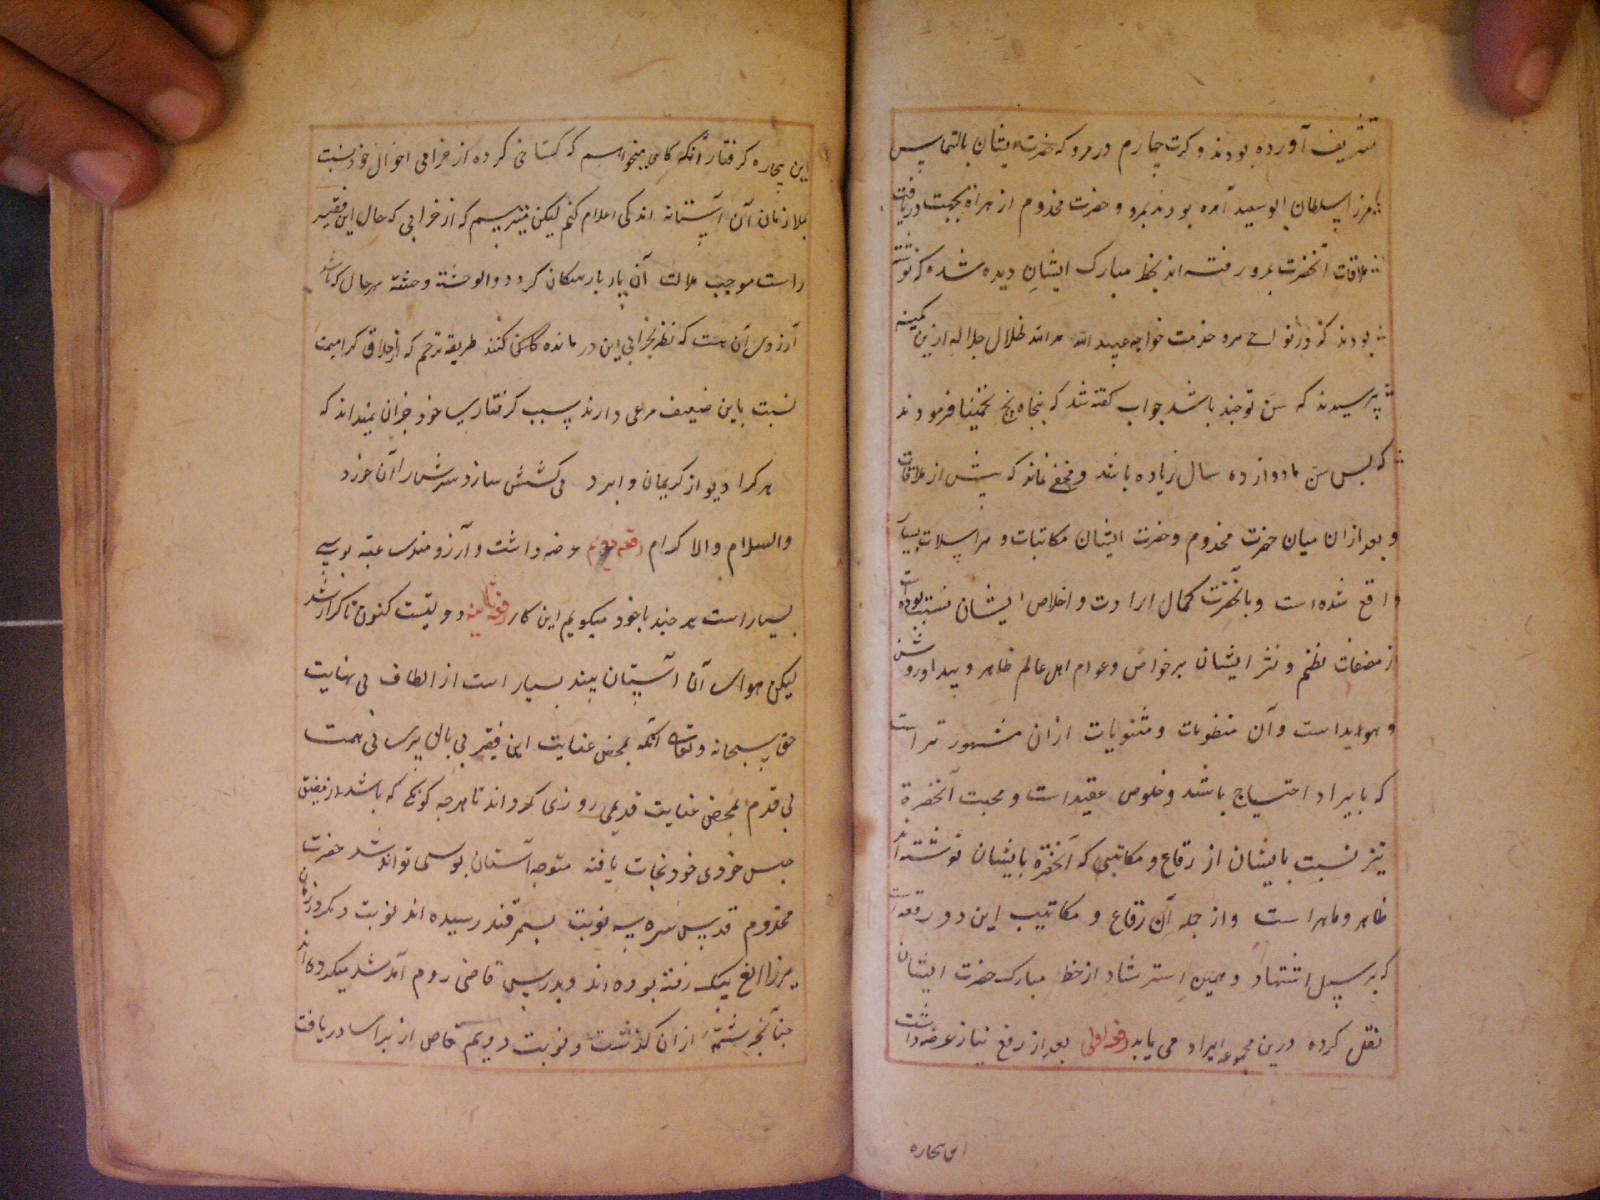 تشریف آورده بودند و کرت چهارم در مرو که حضرت ایشان بالتماس
میرزا سلطان ابو سعید آمده بودند بمرو و حضرت مخدوم از هراة بجهت دریافت
ملاقات آنحضرت بمرو رفته اند بخط مبارک ایشان دیده شده که نوشته
بودند که در نواحی مرو خدمت خواجه عبید الله مد الله ظلال جلاله ازین کمینه
پرسیدند که سن تو چند باشد جواب گفته شد که پنجاه پنج تخمینا فرمودند
که پس سن ما دوازده سال زیاده باشد و مخفی نماند که پیش از ملاقات
و بعد از ان میان حضرت مخدوم و حضرت ایشان مکاتبات و مراسلات بسیار
واقع شده است و بآنحضرت کمال ارادت و اخلاص ایشان نسبت بوده است
از مصنفات نظم و نثر ایشان بر خواص و عوام اهل عالم ظاهر و پیدا و روشن
و هویداست و آن منظومات و مثنویات ازان مشهور تر است
که بایراد احتیاج باشد و خلوص عقیدات و محبت آنحضرة
نیز نسبت بایشان از رقاع و مکاتیبی که آنحضرة بایشان نوشته اند
ظاهر و ماهر است و از جمله آن رقاع و مکاتیب این دو رقعه است
که بر سبیل استشهاد و میمن استرشاد از خط مبارک حضرت ایشان
نقل کرده درین مجموعه ایراد می یابد رقعه اولی بعد از رفع نیاز عرضه داشت
این بیچاره
این بیچاره گرفتار آنکه گاهی میخواهم که گستاخی کرده از خرابی احوال خود نسبت
بملازمان آن آستانه اندکی اعلام کنم لیکن میترسم که از خرابی که حال این فقیر
راست موجب ملالت آن باریابندگان گردد والوحشة وحشة بهر حال که باشد
آرزوی آن هست که نظر بخرابی این درمانده گاهی کنند طریقه ترحم که اخلاق کرامیست
نسبت باین ضعیف مرعی دارند سبب گرفتاریها خود جز آن نمیداند که
هر کرا دیو از کریمان وابرد بی کسش سازد سرش را آن خورد
والسلام والاکرام رقعه دویم عرضه داشت و آرزومندی عتبه بوسی
بسیار است هر چند با خود میگویم این کار دولتست کنون تا کرا رسد
لیکن هوای آن آستان بلند بسیار است از الطاف بی نهایت
حق سبحانه و تعالی آنکه بمحض عنایت این فقیر بی بال پر بی همت
بی قدم بمحض عنایت قدیمی روزی گرداند تا بهر چه گونگی که باشد از مضیق
حبس خودی خود نجات یافته متوجه آستان بوسی تواند شد حضرت
مخدوم قدس سره سه نوبت بسمرقند رسیده اند نوبت دیگر در زمان
میرزا الغ بیک رفته بوده اند و بدرس قاضی روم آمد شد میکرده اند
چنانچه شمه ازان گذشت و نوبت دویم خاص از برای دریافت